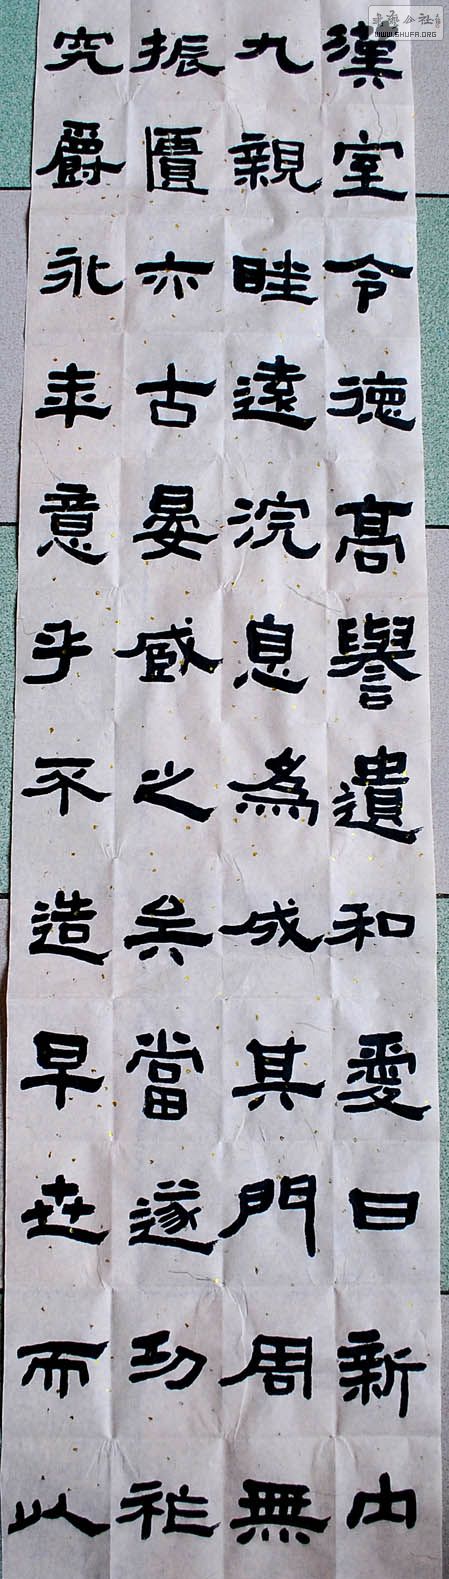 漢室令德高譽遺和愛日新内
九親睦遠浣息為成其門周無
振匱亦古晏臧之矣當遂功祚
究爵永年意乎不造早世而以
书艺公社
WWW.SHUFA.ORG